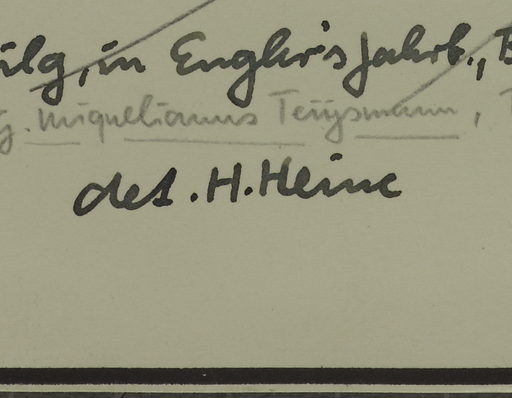 ilg, in Engler's Jahrb., B
g. miquelianus Teijsmann,
det. H. Heine